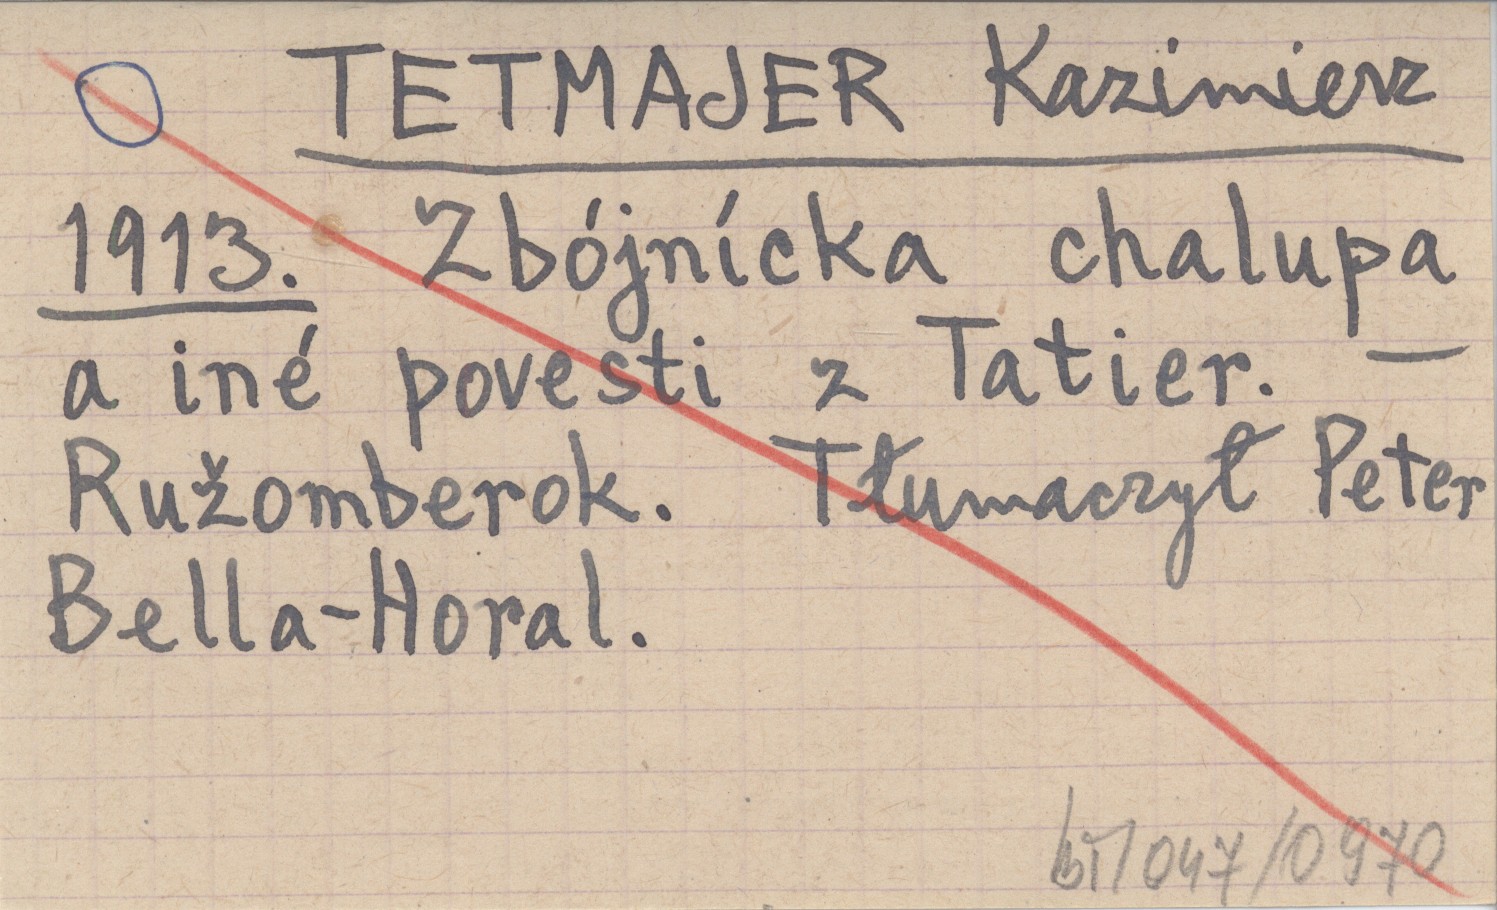 TETMAJER Kazimierz
1913. Zbójnícka chalupa
a iné povesti z Tatier. —
Ružomberok. Tłumaczył Peter
Bella-Horal.
bi/047/0970